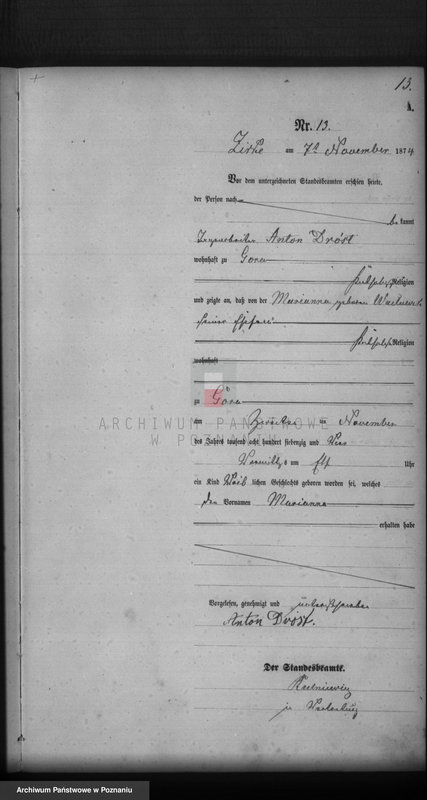 13.
A.
Nr. 13.
Zirke am 7ten November 1874
Vor dem unterzeichneten Standesbeamten erschien heute,
der Person nach
be kannt
Anton Dróst
wohnhaft zu Gora
katholischer Religion
und zeigte an, daß von der Marianna geboren
seiner Ehefrau
katholischer Religion
wohnhaft
zu Góra
ARCHIWUM PAŃSTWOWE
W POZNANIU
am November
des Jahres tausend acht hundert siebenzig und vier
Vormittags um elf Uhr
ein Kind weib lichen Geschlechts geboren worden sei, welches
den Vornamen Marianna
erhalten habe
Vorgelesen, genehmigt und unterschrieben
Anton Dróst.
Der Standesbeamte.
Archiwum Państwowe w Poznaniu